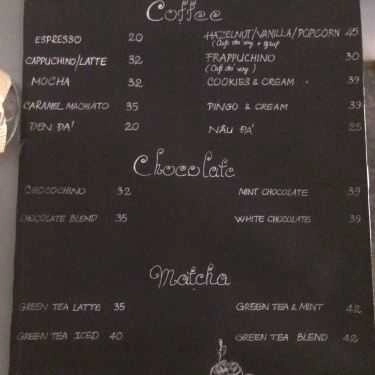 Coffee
ESPRESSO 20
HAZELNUT/VANILLA/POPCORN 45
CAPPUCHINO/LATTE 32
FRAPPUCHINO 30
MOCHA 32
COOKIES & CREAM 39
CARAMEL MACHIATO 35
PINGO & CREAM 39
ĐEN ĐÁ 20
NÂU ĐÁ 25
Chocolate
CHOCOCHINO 32
MINT CHOCOLATE 39
CHOCOLATE BLEND 35
WHITE CHOCOLATE 39
Matcha
GREEN TEA LATTE 35
GREEN TEA & MINT 42
GREEN TEA ICED 40
GREEN TEA BLEND 42